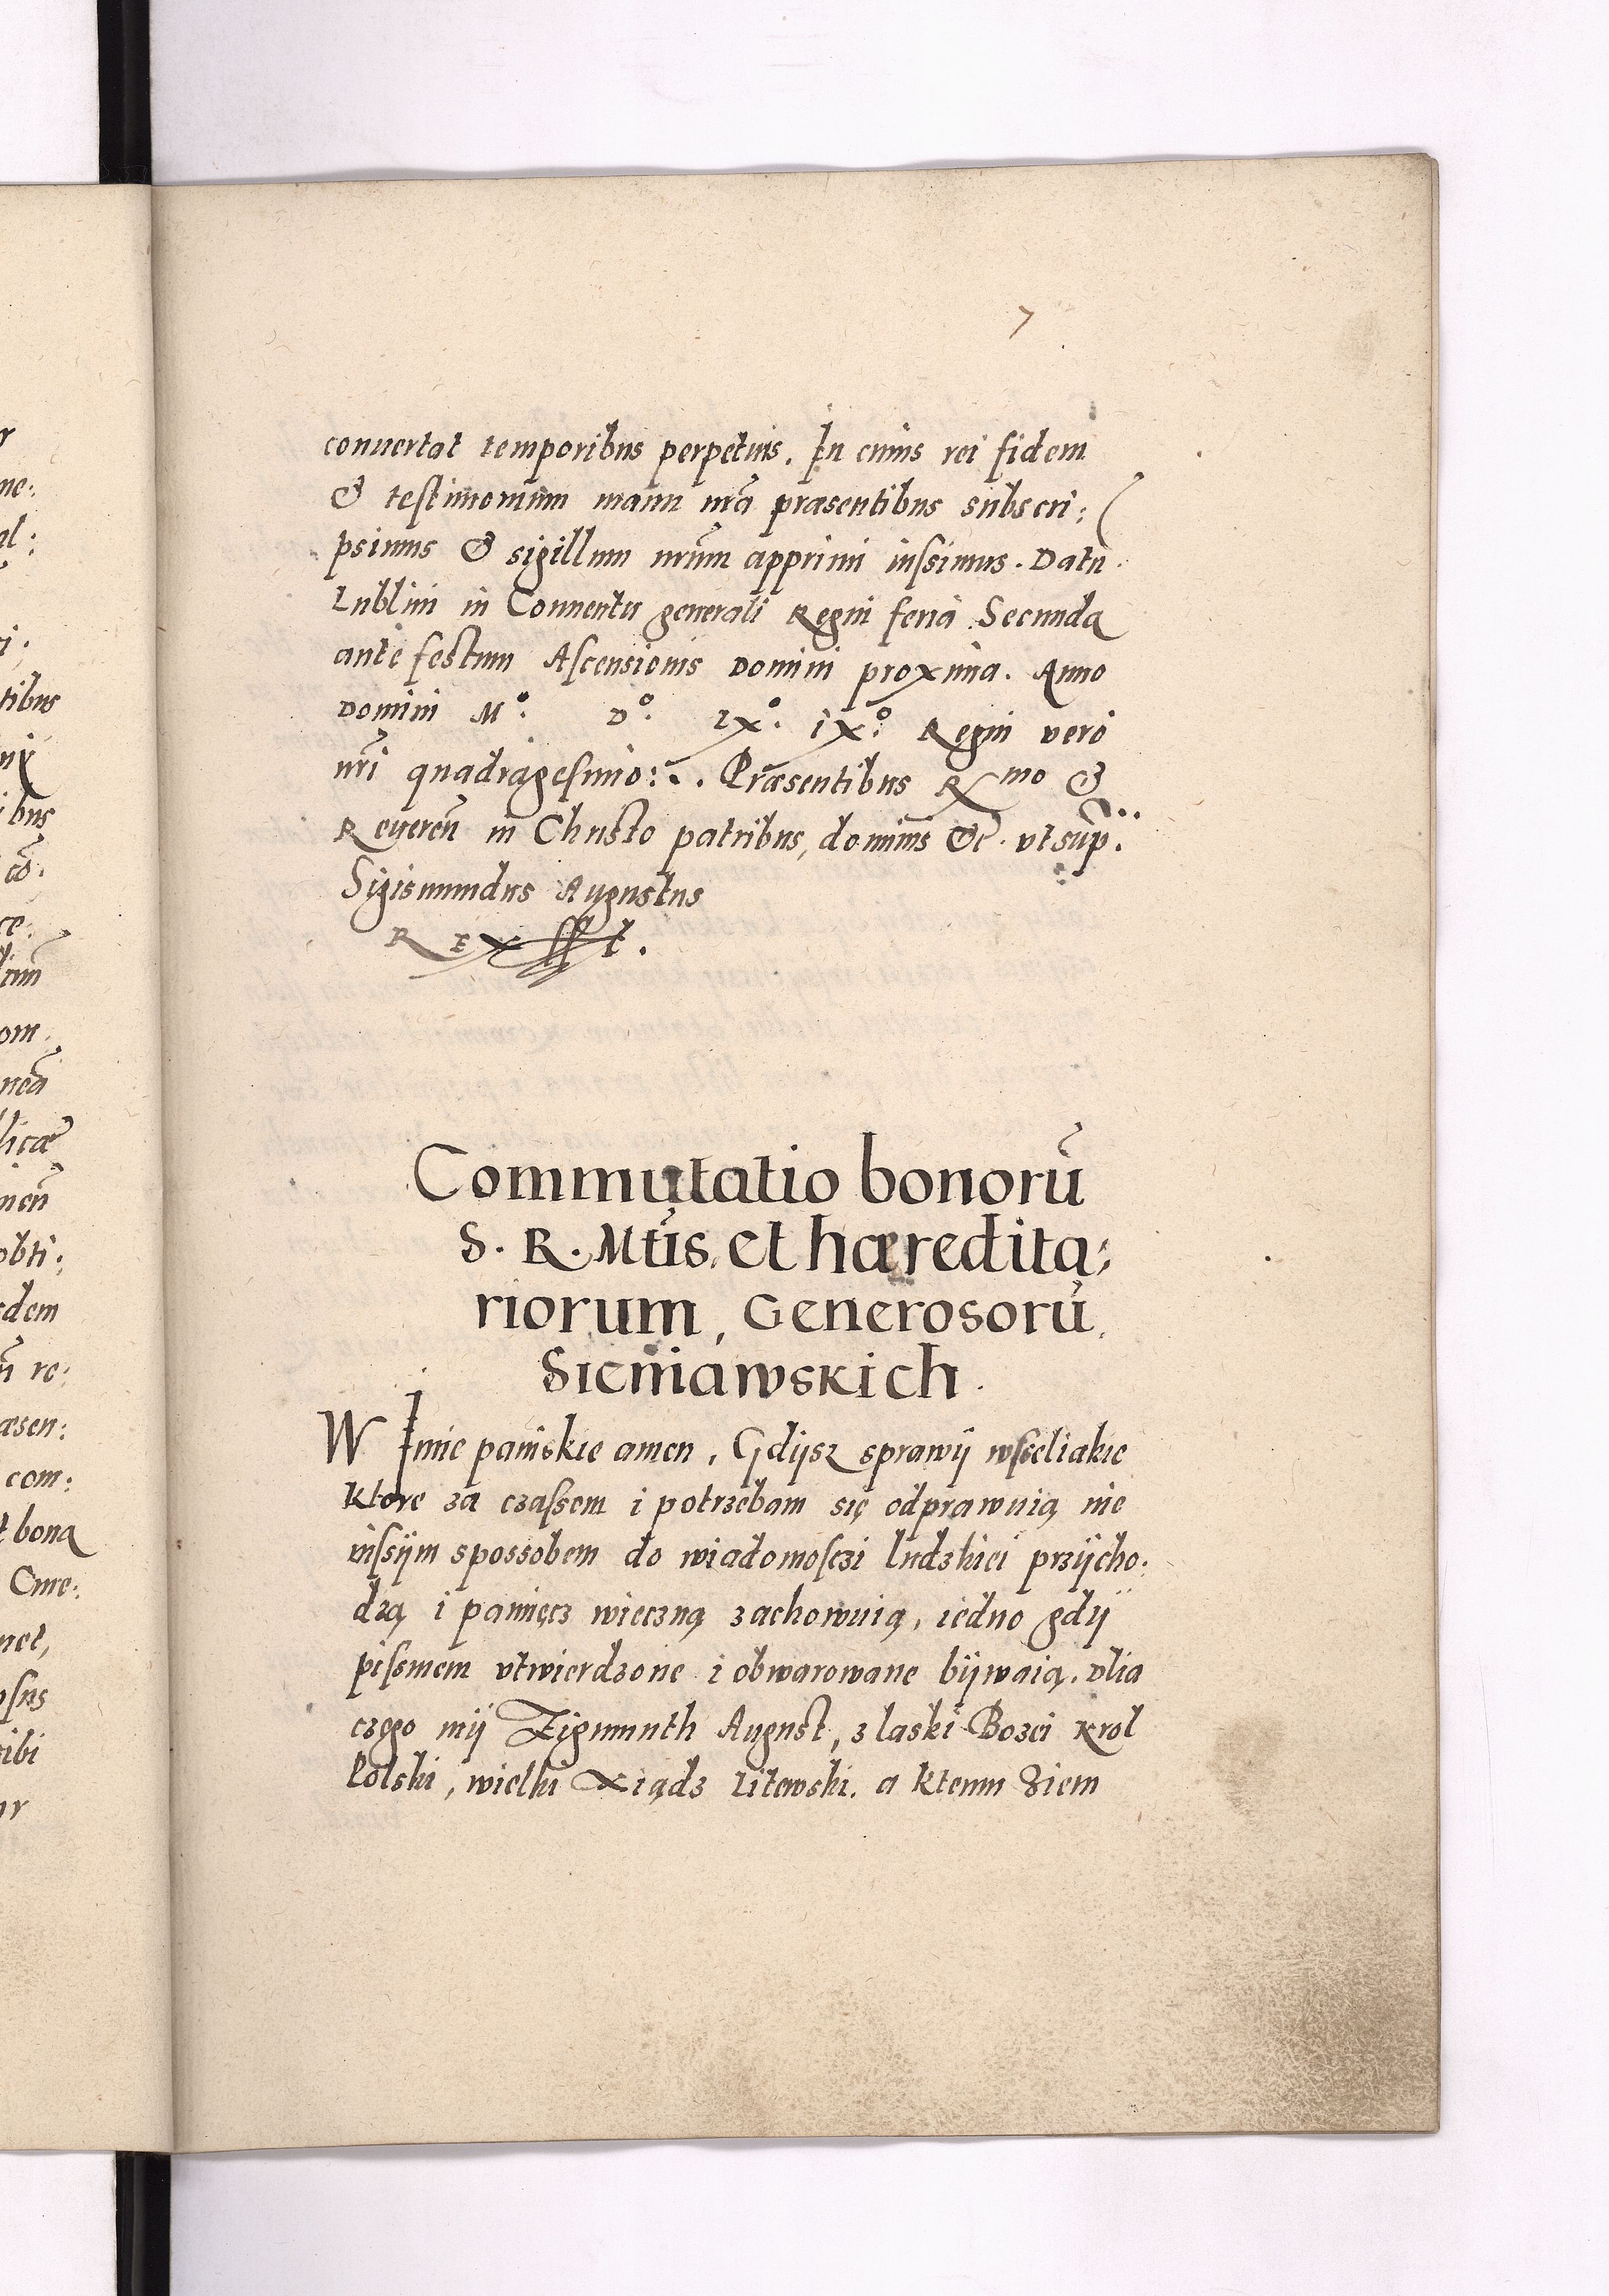 7
conuertat temporibus perpetuis. In cuius rei fidem
& testimonium manu nrã præsentibus subscri:
psimus & sigillum nrũm apprimi iussimus. Datũ.
Lublini in Conuentu generali Regni feria Secunda
ante festum Ascensionis Domini proxima. Anno
Domini Mº. Dº. LXº. IXº. Regni vero
nr̃i quadragesimo:.. Præsentibus Rmo &
Reueren̄ in Christo patribus, dominis &c. vt sup̃.
Sigismundus Augustus
REX sst.
Commutatio bonorũ
S. R. Mtis. et hæredita;
riorum, Generosorũ.
Sieniawskich.
W Imie panskie amen, Gdijsz sprawij wsseliakie
ktore za czassem i potrzebam się odprawuią nie
inssijm spossobem do wiadomosczi ludzkiei przijcho:
dzą i pamięcz wieczną zachowuią, iedno gdij
pissmem vtwierdzone i obwarowane bijwaią. dlia
czego mij Zigmunth August, z laski Bozei Krol
Polski, wielki Xiądz Litewski. a ktemu Ziem
tibus
ibus
cõ.
om.
licæ
obti:
sdem
re:
æsen:
com:
t bona
Cme:
net,
sibi